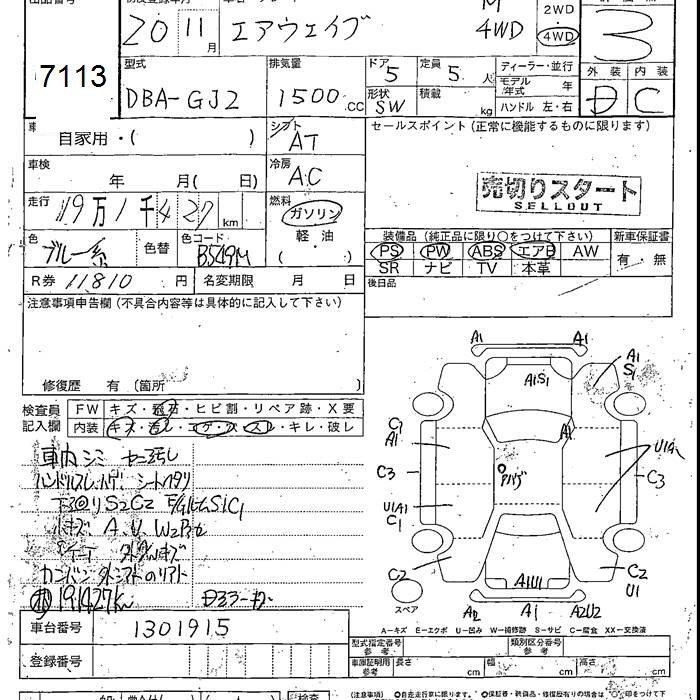 出品番号 初度登録年月 車名・グレード
2WD
20 11月 エアウェイブ M 4WD 4WD 3
7113
型式 排気量 ドア 5 定員 5人 ディーラー・並行 外装 内装
モデル年式 年
DBA-GJ2 1500 cc 形状 SW 積載 kg ハンドル 左・右 D C
自家用・( ) シフト AT セールスポイント(正常に機能するものに限ります)
車検 年 月( 日) 冷房 AC
売切りスタート
SELLOUT
走行 19万1千427km 燃料 ガソリン
軽・油
( )
色 ブルー系 色替 色コード B549M
装備品(純正品に限り○をつけて下さい) 新車保証書
PS PW ABS エアB AW 有・無
SR ナビ TV 本革
R券 11810円 名変期限 月 日 後日品
注意事項申告欄(不具合内容等は具体的に記入して下さい)
修復歴 有(箇所 )
検査員記入欄 FW キズ・飛石・ヒビ割・リペア跡・X要
内装 キズ・汚レ・コゲ・ス・スレ・キレ・破レ
車内シミ
ハンドルスレ シートヘタリ
小キズ A.U.
191427km
A1 A1
A1S1 A1 S1
C1 A1 A1 U1A1
C3 C3
U1A1 C1
C2 C2 U1
A1U1
スペア
A2 A1 A2U2
A-キズ E-エクボ U-凹み W-補修跡 S-サビ C-腐食 XX-交換済
車台番号 1301915
登録番号
型式指定番号 参考 類別区分番号 参考
車庫証明用 参考 長さ cm 幅 cm 高さ cm